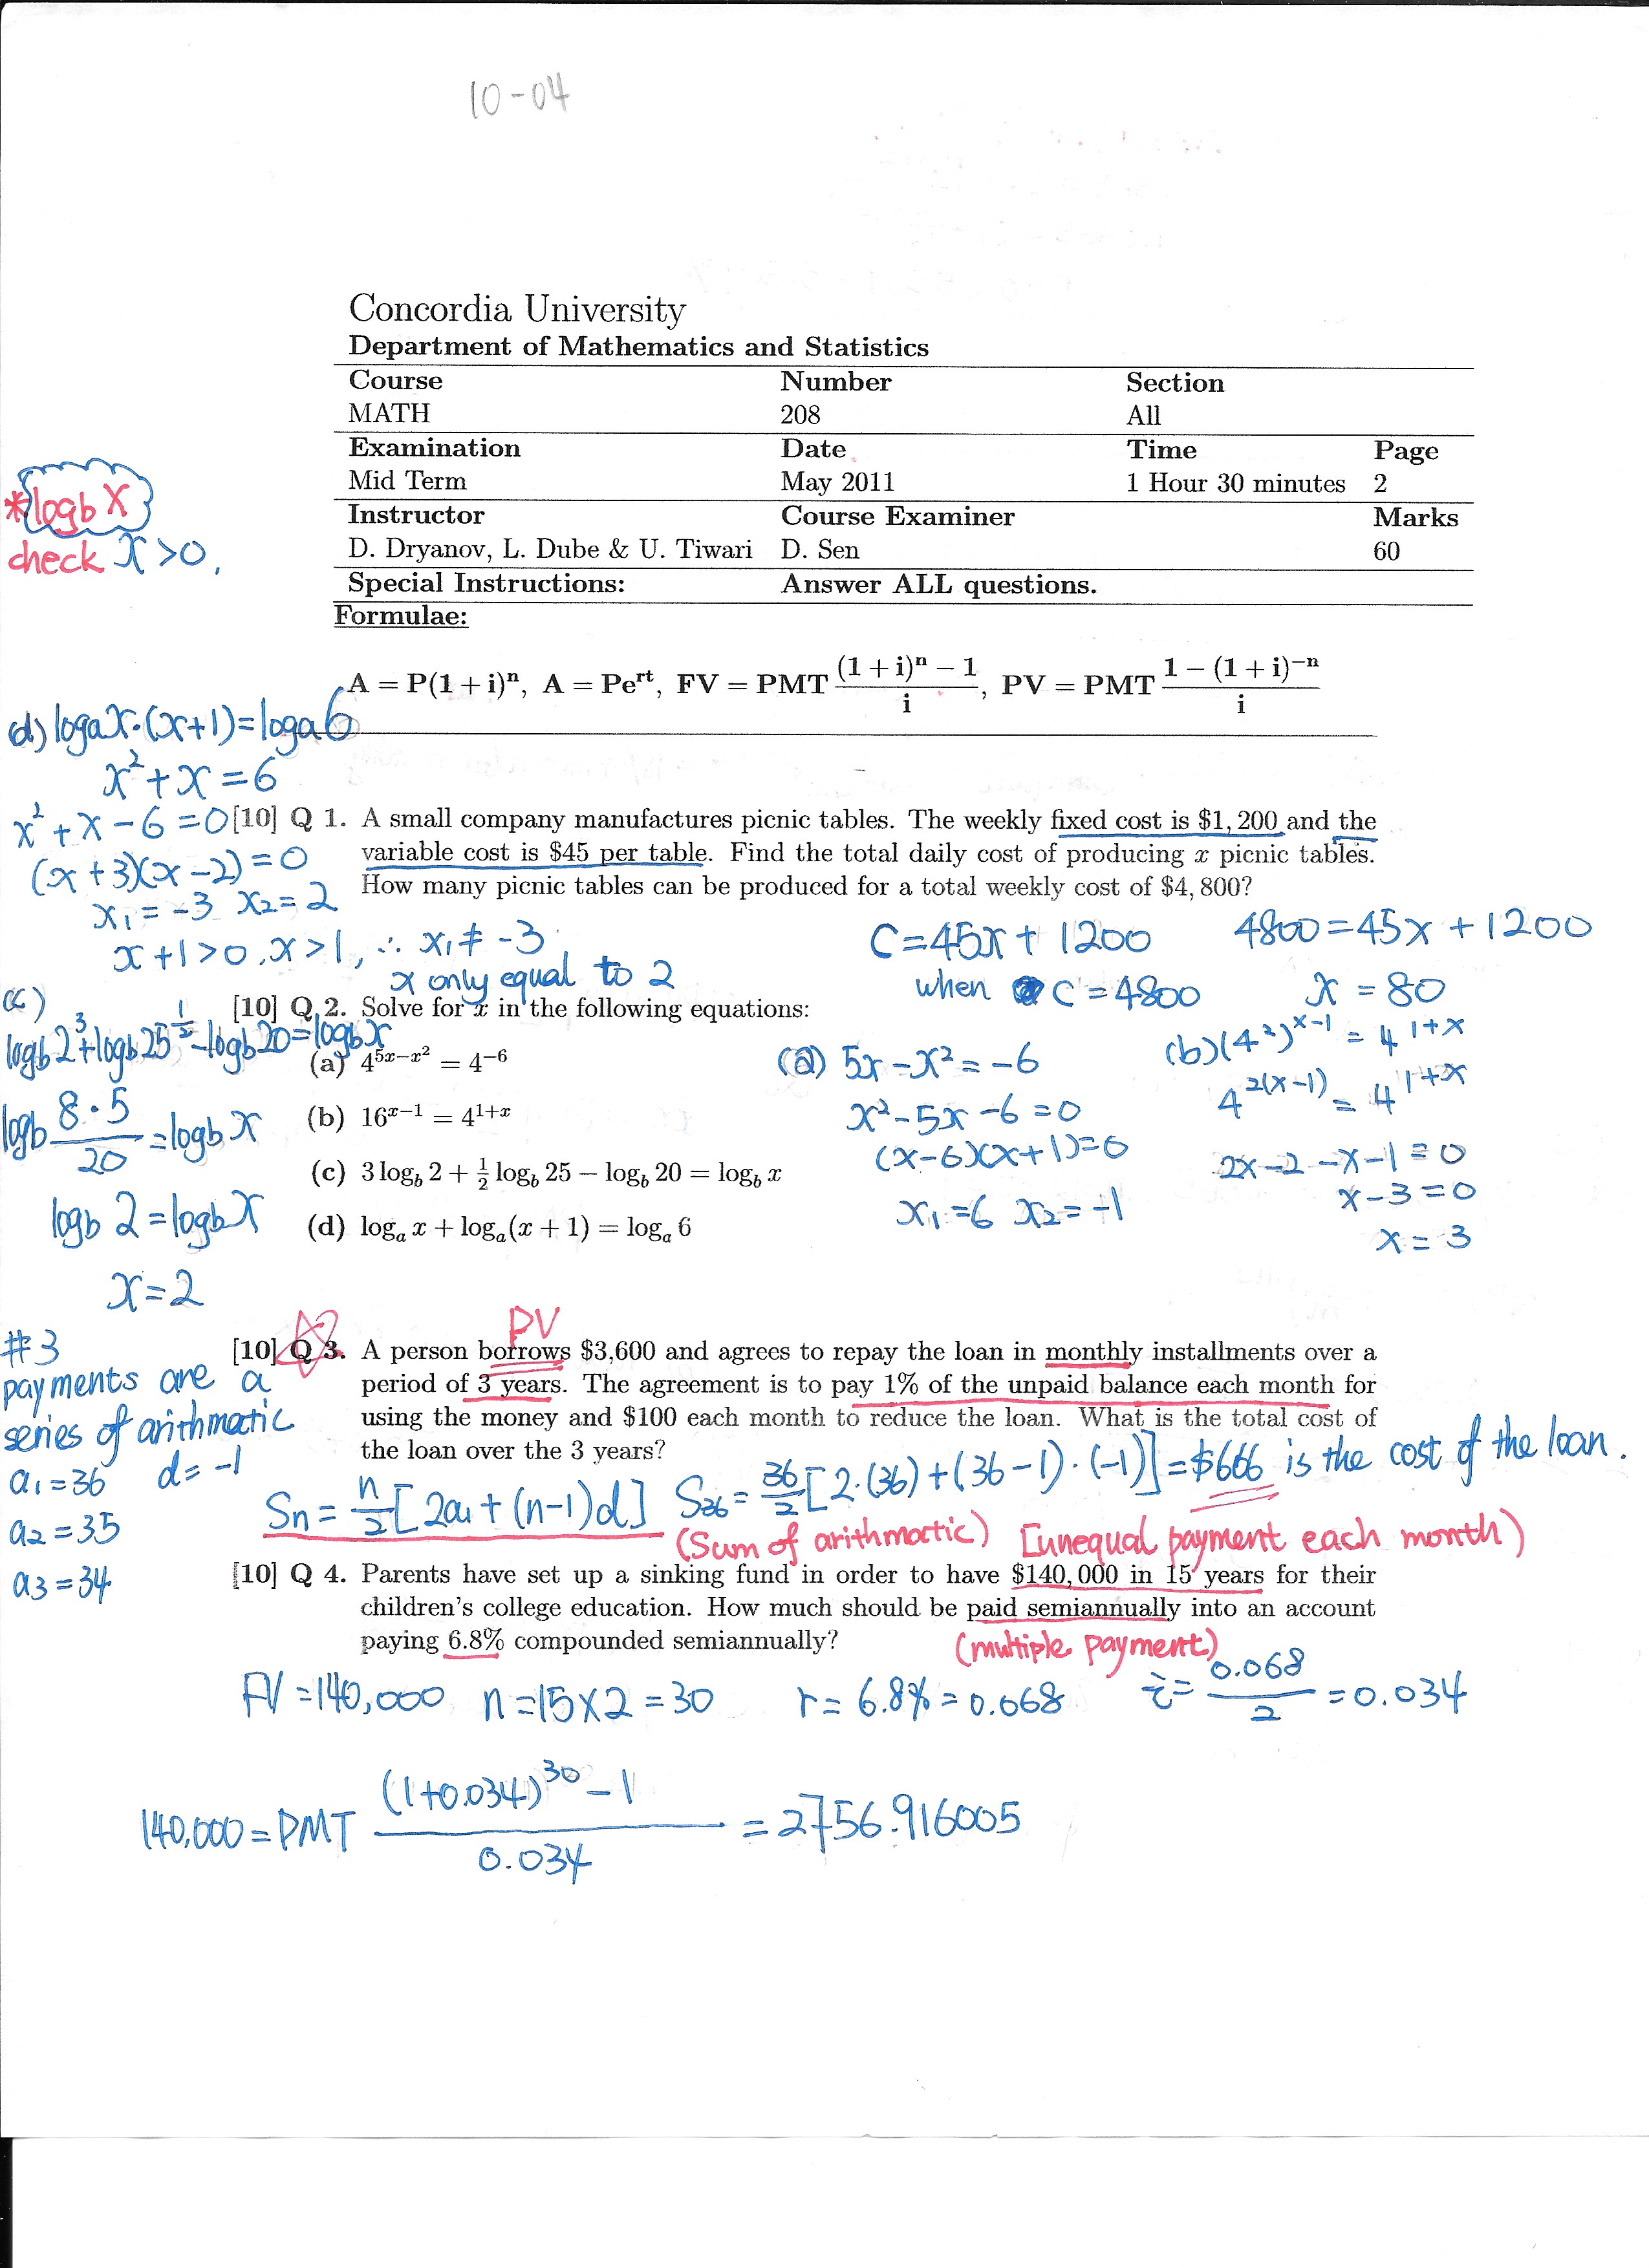 10-04
Concordia University
Department of Mathematics and Statistics
Course Number Section
MATH 208 All
Examination Date Time Page
Mid Term May 2011 1 Hour 30 minutes 2
Instructor Course Examiner Marks
D. Dryanov, L. Dube & U. Tiwari D. Sen 60
Special Instructions: Answer ALL questions.
Formulae:
A = P(1 + i)ⁿ, A = Peʳᵗ, FV = PMT ((1 + i)ⁿ − 1)/i, PV = PMT (1 − (1 + i)⁻ⁿ)/i
*logb X
check x >0,
(d) logaX·(x+1)=loga6
x²+x=6
x²+x−6=0
(x+3)(x−2)=0
x1=-3 x2=2
x+1>0, x>1, ∴ x1≠-3
x only equal to 2
[10] Q 1. A small company manufactures picnic tables. The weekly fixed cost is $1,200 and the
variable cost is $45 per table. Find the total daily cost of producing x picnic tables.
How many picnic tables can be produced for a total weekly cost of $4,800?
C=45x+1200 4800=45x+1200
when C=4800 x=80
[10] Q 2. Solve for x in the following equations:
(a) 4^(5x−x²) = 4^(−6)
(b) 16^(x−1) = 4^(1+x)
(c) 3 log_b 2 + ½ log_b 25 − log_b 20 = log_b x
(d) log_a x + log_a(x + 1) = log_a 6
(c)
logb2³+logb25^½−logb20=logbx
logb (8·5)/20=logbx
logb2=logbX
x=2
(a) 5x−x²=−6
x²−5x−6=0
(x−6)(x+1)=0
x1=6 x2=−1
(b)(4²)^(x−1)=4^(1+x)
4^(2(x−1))=4^(1+x)
2x−2−x−1=0
x−3=0
x=3
PV
[10] Q 3. A person borrows $3,600 and agrees to repay the loan in monthly installments over a
period of 3 years. The agreement is to pay 1% of the unpaid balance each month for
using the money and $100 each month to reduce the loan. What is the total cost of
the loan over the 3 years?
#3
payments are a
series of arithmatic
a1=36 d=-1
a2=35
a3=34
Sn=n/2[2a1+(n−1)d] S36=36/2[2·(36)+(36−1)·(−1)]=$666 is the cost of the loan.
(Sum of arithmatic) [unequal payment each month)
[10] Q 4. Parents have set up a sinking fund in order to have $140,000 in 15 years for their
children's college education. How much should be paid semiannually into an account
paying 6.8% compounded semiannually?
(multiple payment)
FV=140,000 n=15×2=30 r=6.8%=0.068 i=0.068/2=0.034
140,000=PMT ((1+0.034)³⁰−1)/0.034 =2756.916005